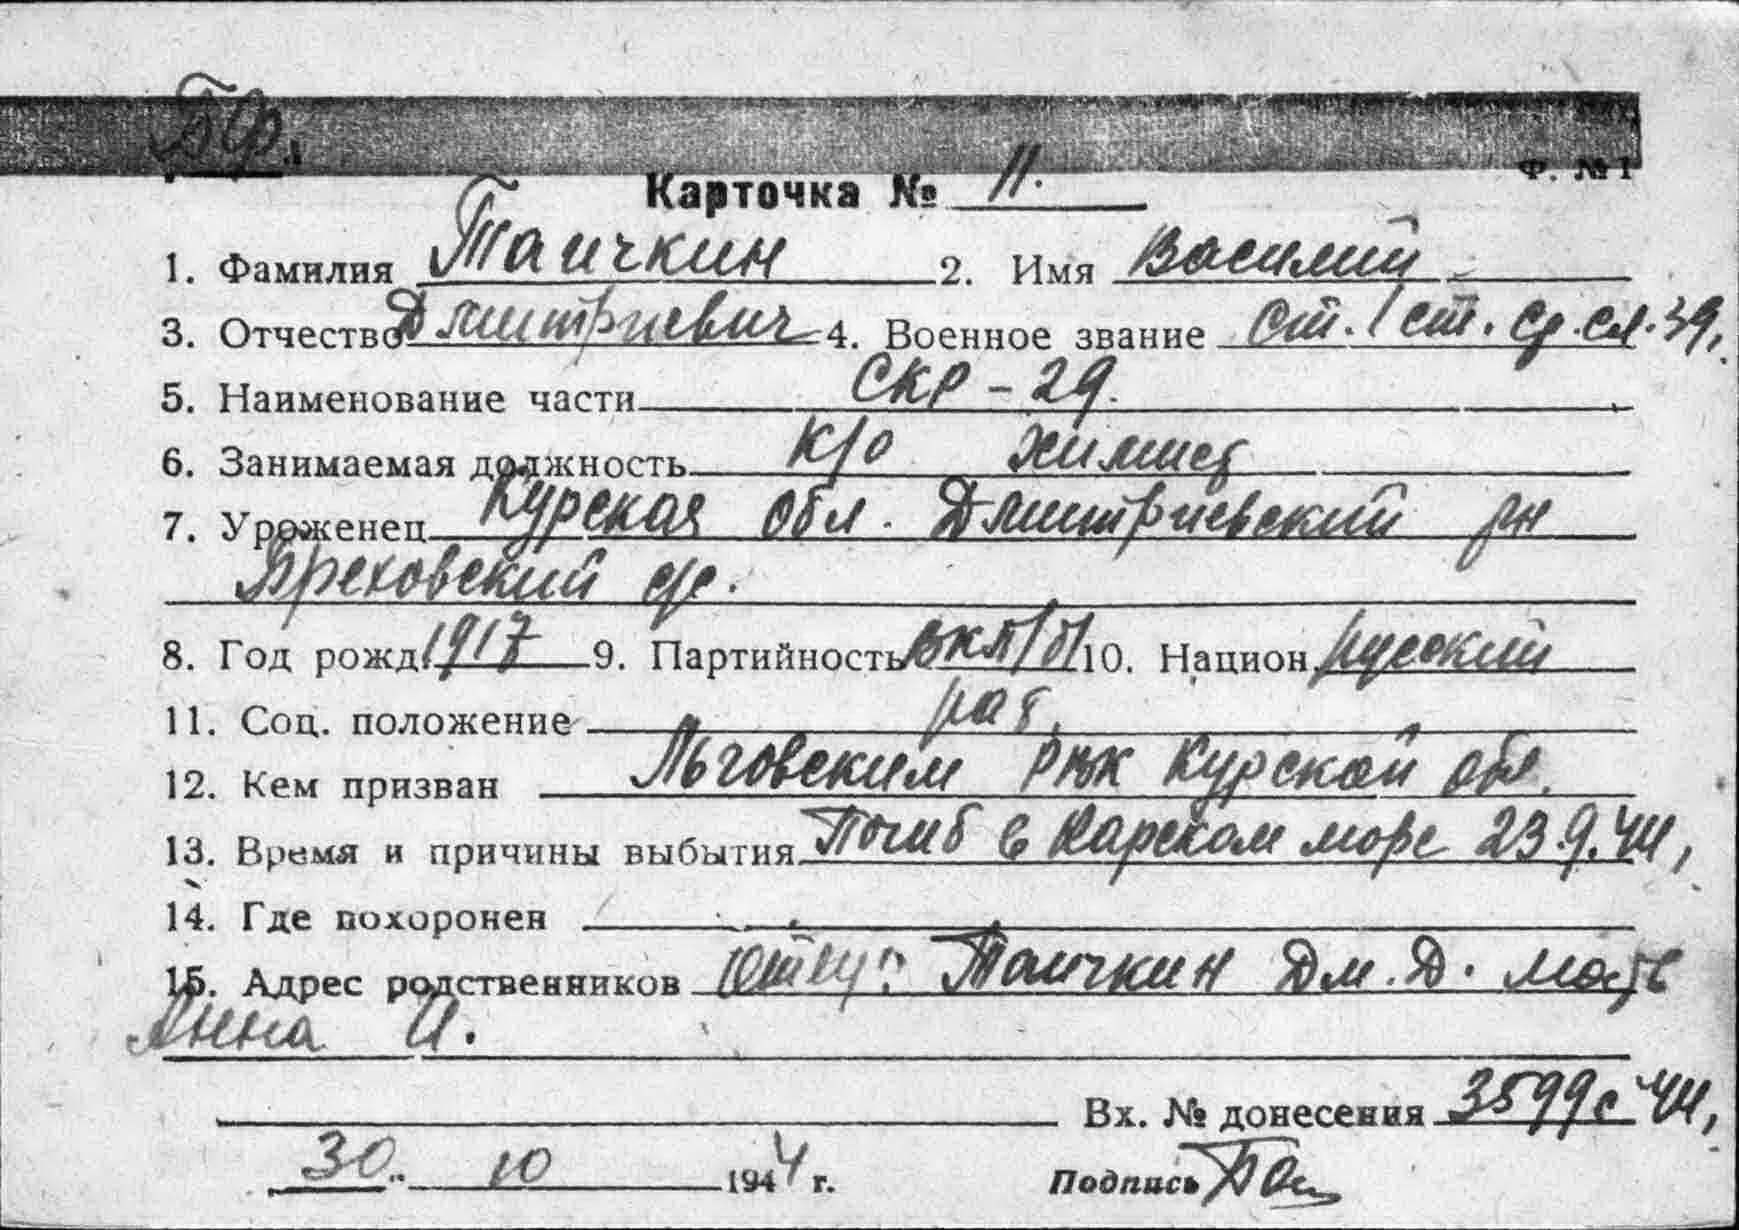 БФ.
Ф. № 1
Карточка № 11.
1. Фамилия Таичкин 2. Имя Василий
3. Отчество Дмитриевич 4. Военное звание ст. 1 ст. ср. сл. 39г.
5. Наименование части СКР-29.
6. Занимаемая должность к/о химист
7. Уроженец Курская обл. Дмитриевский рн
Береховский с/с.
8. Год рожд. 1917 9. Партийность ВКП/б/ 10. Национ. русский
11. Соц. положение раб.
12. Кем призван Льговским РВК Курской обл.
13. Время и причины выбытия Погиб в Карском море 23.9.44,
14. Где похоронен
15. Адрес родственников Отец: Таичкин Дм. Д. мать
Анна И.
Вх. № донесения 3599с 44,
30. 10 1944 г. Подпись